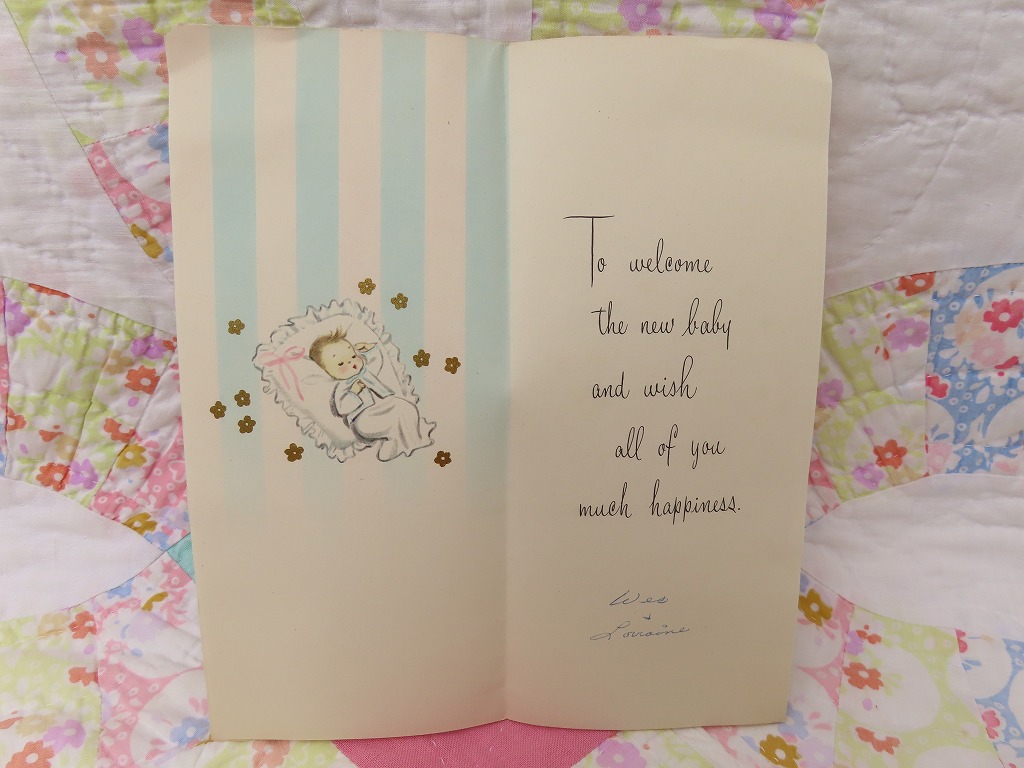 To welcome
the new baby
and wish
all of you
much happiness.
Wes
+
Lorraine